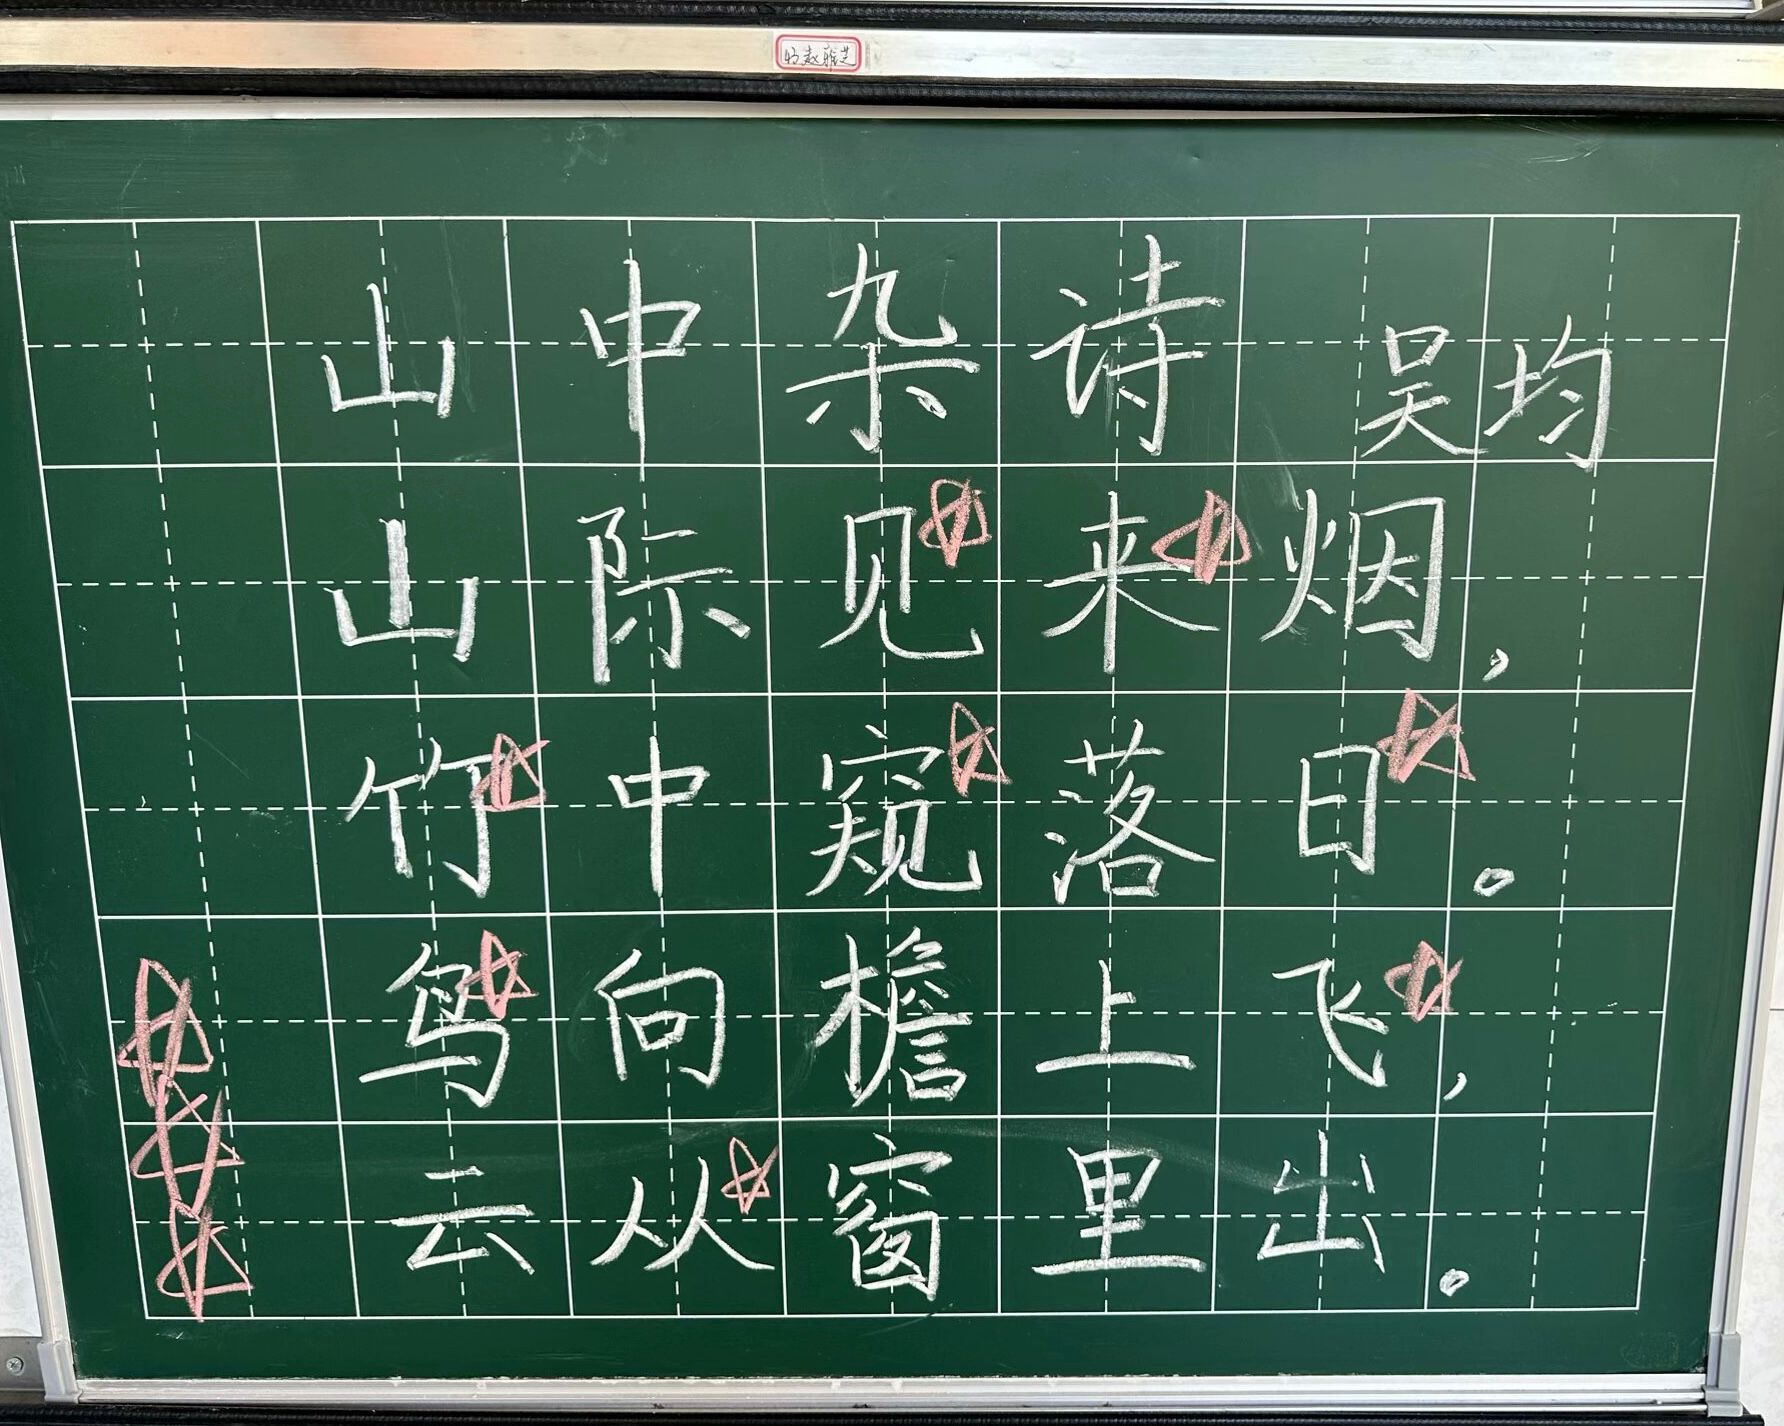 赵雅芝
山中杂诗 吴均
山际见来烟，
竹中窥落日。
鸟向檐上飞，
云从窗里出。